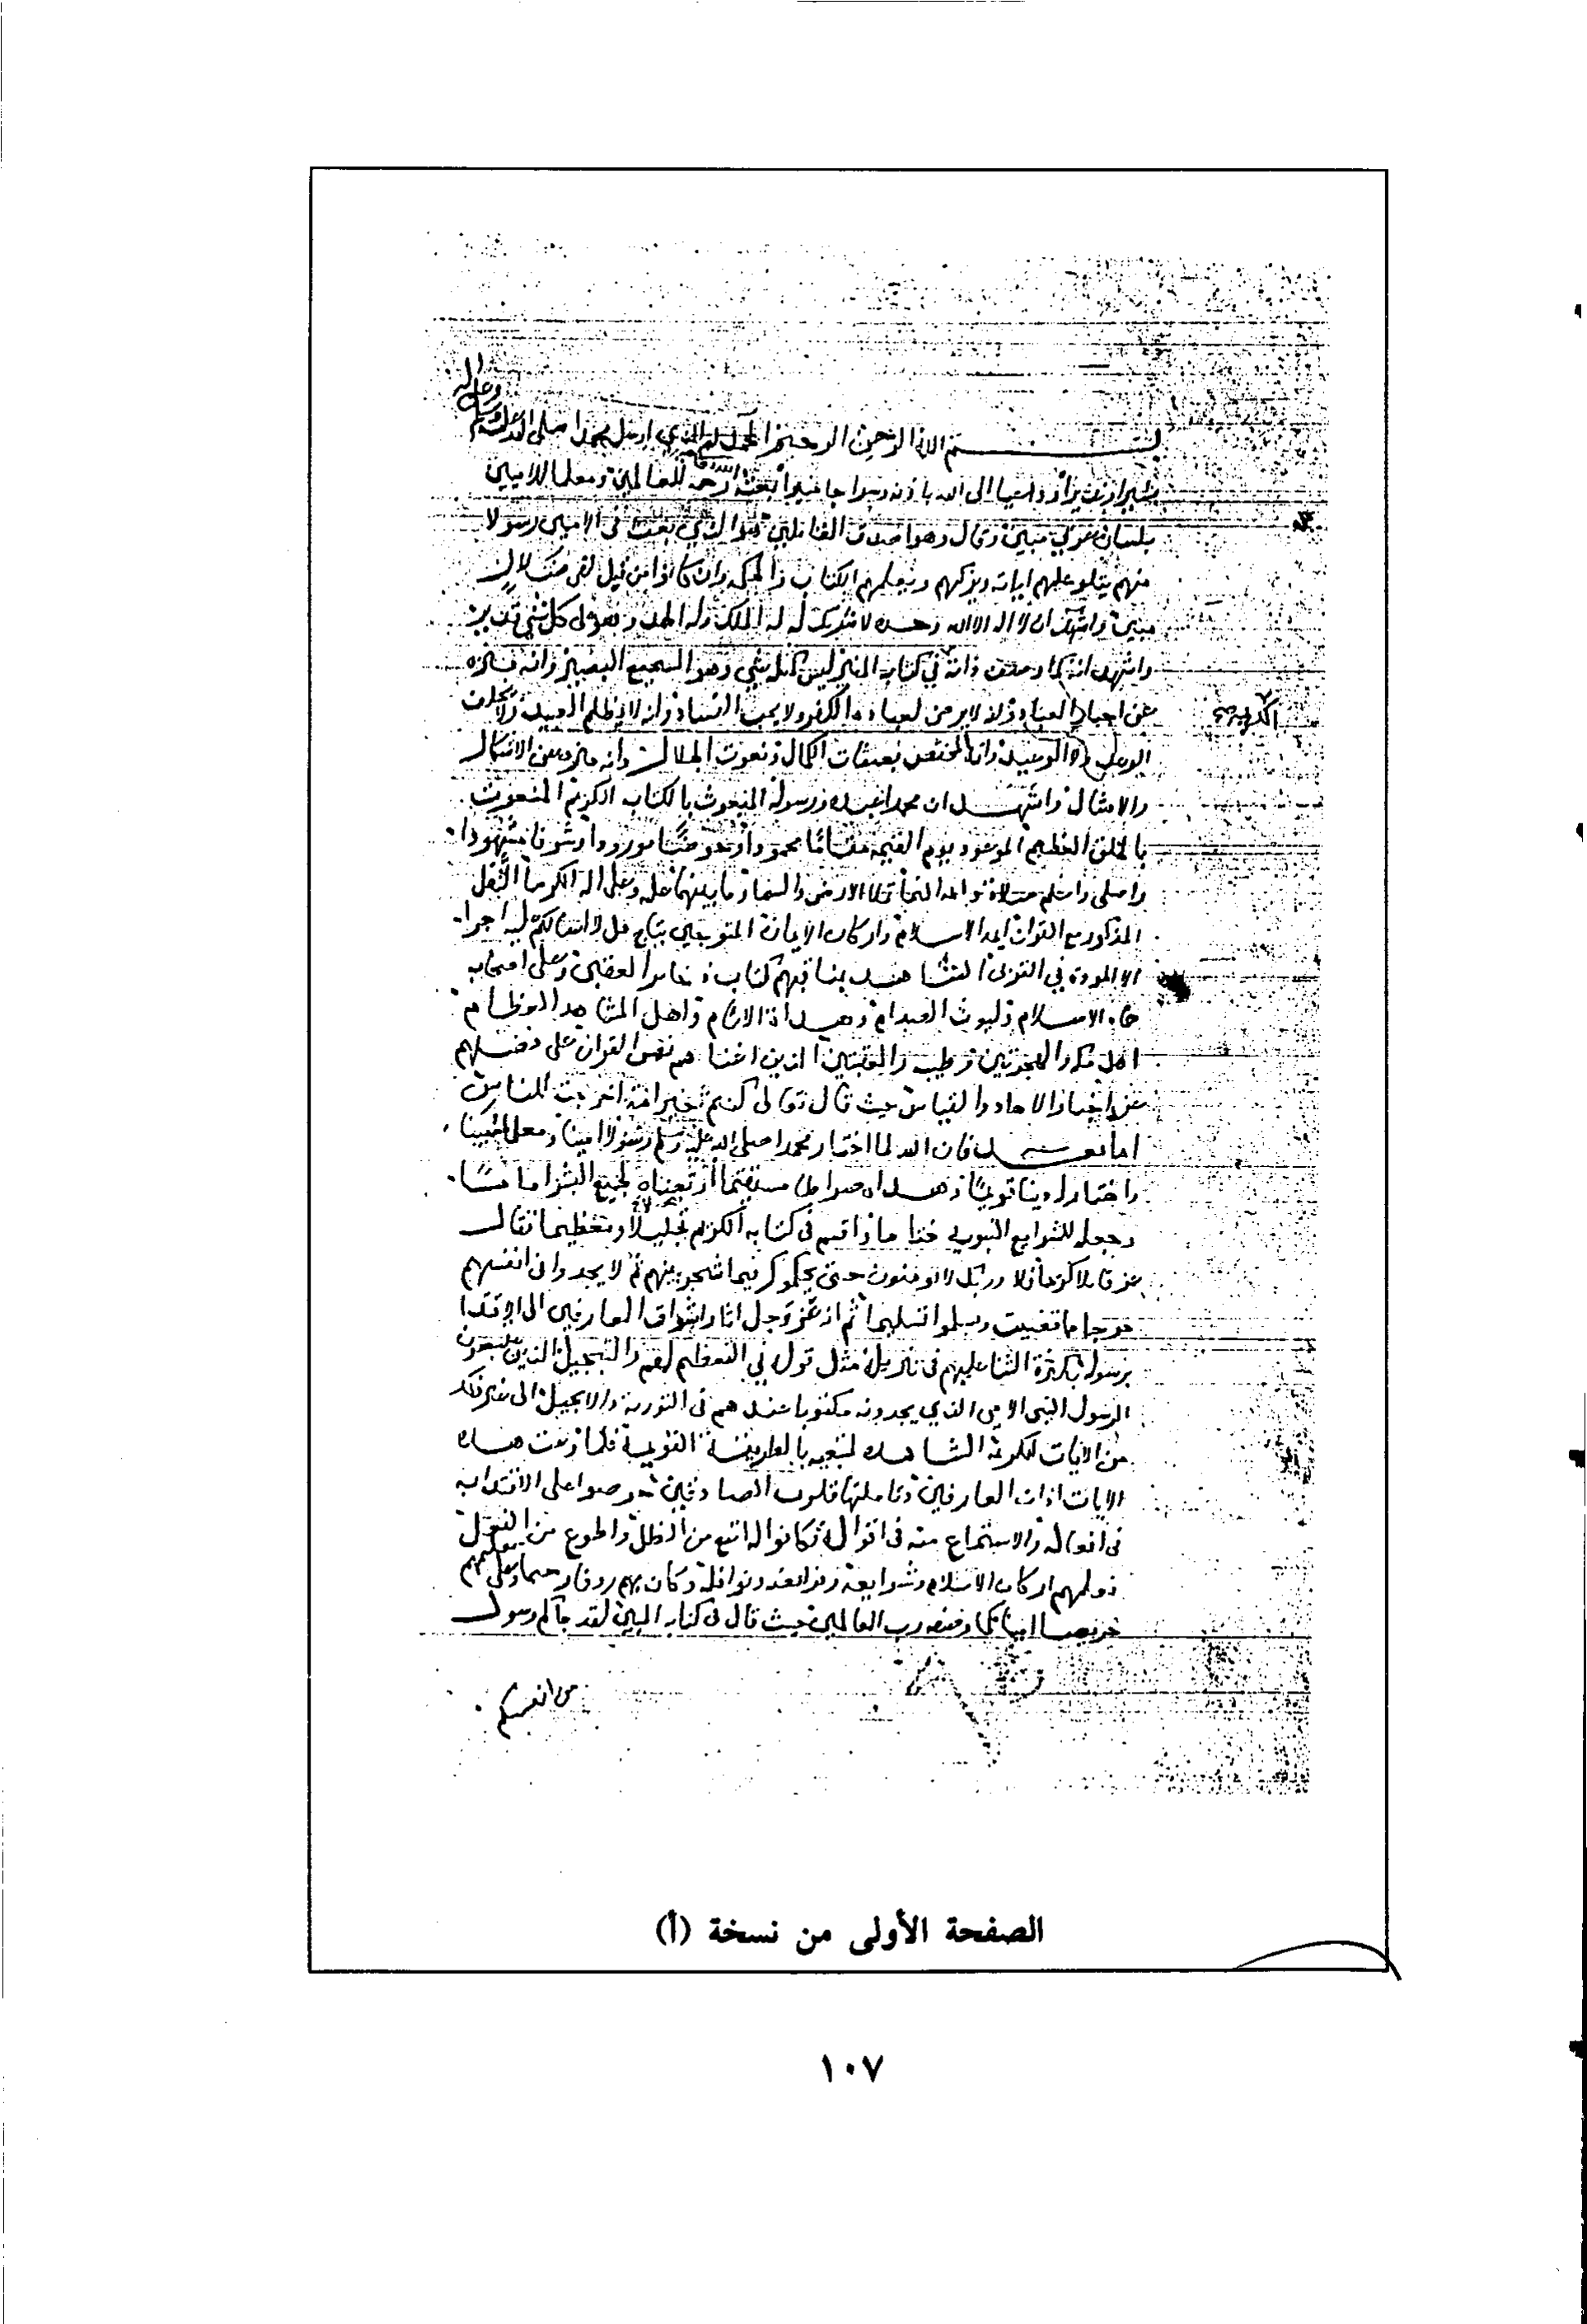 بسم الله الرحمن الرحيم الحمد لله الذي ارسل محمدا صلى الله عليه وسلم
وعلى اله
بشيرا ونذيرا وداعيا الى الله باذنه وسراجا منيرا بعثه الله رحمة للعالمين ومعلما للاميين
بلسان عربي مبين وقال وهو اصدق القائلين هو الذي بعث في الاميين رسولا
منهم يتلو عليهم اياته ويزكيهم ويعلمهم الكتاب والحكمه وان كانوا من قبل لفي ضلال
مبين واشهد ان لا اله الا الله وحده لا شريك له له الملك وله الحمد وهو على كل شي قدير
واشهد انه كما وصف ذاته في كتابه المنير ليس كمثله شي وهو السميع البصير وانه
عن العباد وانه لا يرضى لعباده الكفر ولا يحب الفساد وانه لا يظلم العبيد ولا يخلف
الوعد ولا الوعيد وانه المختص بصفات الكمال ونعوت الجلال وانه منزه عن الاشكال
والامثال واشهد ان محمدا عبده ورسوله المبعوث بالكتاب الكريم المنعوت
بالخلق العظيم الموعود يوم القيمه مقاما محمودا وحوضا مورودا مشهودا
واصلي واسلم صلاة الارض والسما وما بينهما عليه وعلى اله الكرما الثقل
المذكور مع القران الاسلام واركان الايمان المتوجين بتاج قل لا اسالكم عليه اجرا
الا المودة في القربى الشاهد بمناقبهم كتاب العقبى وعلى اصحابه
حماة الاسلام وليوث الصدام وهداة الانام واهل المشاهد العظام
اهل مكه والهجرتين وطيبه والقبلتين الذين اغناهم نص القران على فضلهم
عن اخبار الاحاد والقياس حيث قال تعالى كنتم خير امة اخرجت للناس
اما بعد فان الله لما اختار محمدا صلى الله عليه وسلم رسولا امينا ومعلما مبينا
واختار له دينا قويما وهداه صراطا مستقيما ارتضاه لجميع البشر اماما
وجعله للشرايع النبويه ختاما واقسم في كتابه الكريم تبجيلا وتعظيما فقال
عز قايلا كريما فلا وربك لا يومنون حتى يحكموك فيما شجر بينهم ثم لا يجدوا في انفسهم
حرجا مما قضيت ويسلموا تسليما ثم انه عز وجل اثار اشواق العارفين الى الاقتدا
برسوله بكثرة الثنا عليهم في تنزيله مثل قوله في التعظيم لهم والتبجيل الذين يتبعون
الرسول النبي الامي الذي يجدونه مكتوبا عندهم في التورية والانجيل الى غير ذلك
من الايات الكريمة الشاهده لمتبعيه بالطريقة القويمة فلما وعت هذه
الايات اذان العارفين وتاملتها قلوب الصادقين حرصوا على الاقتدا به
في افعاله والاستماع منه في اقواله فكانوا له اتبع من الظل واطوع من النعل
فعلمهم اركان الاسلام وشرايعه وفرايضه ونوافله وكان بهم روفا رحيما وعلى تعليمهم
حريصا امينا كما وصفه رب العالمين حيث قال في كتابه المبين لقد جاكم رسول
من انفسكم
الصفحة الأولى من نسخة (أ)
١٠٧